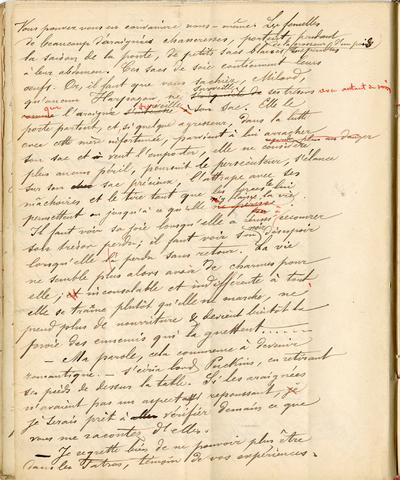 Vous pouvez vous en convaincre vous-même. Les femelles
de beaucoup d'araignées chasseresses, portent, pendant
la saison de la ponte, de petits sacs blancs, de la grosseur d'un pois
à leur abdomen. Ces sacs de soie contiennent leurs
œufs. Or, il faut que vous sachiez, Milord,
qu'aucun Harpagon ne surveille ses trésors avec autant de soin
que l'araignée surveille son sac. Elle le
porte partout, et si quelque agresseur, dans la lutte
avec cette mère infortunée, parvient à lui arracher
son sac et veut l'emporter, elle ne considère
plus aucun péril, poursuit le persécuteur, s'élance
sur son sac précieux, l'attrape avec ses
mâchoires et le tire tant que les forces lui
permettent ou jusqu'à ce qu'elle y laisse la vie.
Il faut voir sa joie lorsqu'elle a pu recouvrer
son trésor perdu, il faut voir son désespoir
lorsqu'elle l'a perdu sans retour. La vie
ne semble plus alors avoir de charmes pour
elle; inconsolable et indifférente à tout
elle se traîne plutôt qu'elle ne marche, ne
prend plus de nourriture & devient bientôt la
proie des ennemis qui la guettent......
— Ma parole, cela commence à devenir
romantique. — s'écria lord Puckins, en retirant
ses pieds de dessus la table. Si les araignées
n'avaient pas un aspect repoussant,
je serais prêt à vérifier demain ce que
vous me racontez d'elles.
— Je regrette bien de ne pouvoir plus être
dans les Tatras, témoin de vos expériences.